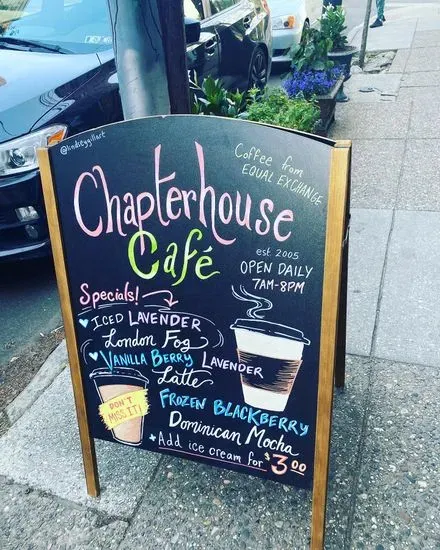 @lindseygillart
Coffee from
EQUAL EXCHANGE
Chapterhouse
Café
est. 2005
OPEN DAILY
7AM-8PM
Specials!
ICED LAVENDER
London Fog
VANILLA BERRY LAVENDER
Latte
DON'T
MISS IT!
FROZEN BLACKBERRY
Dominican Mocha
+ Add ice cream for $3.00